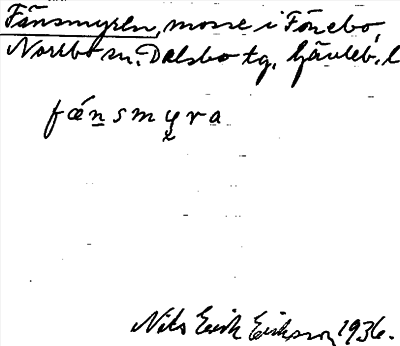 Fänsmyren, mosse i Fönebo,
Norrbo sn. Dalsbo tg, Gävleb. l
fǽn̲smyra
Nils Erik Eriksson 1936.